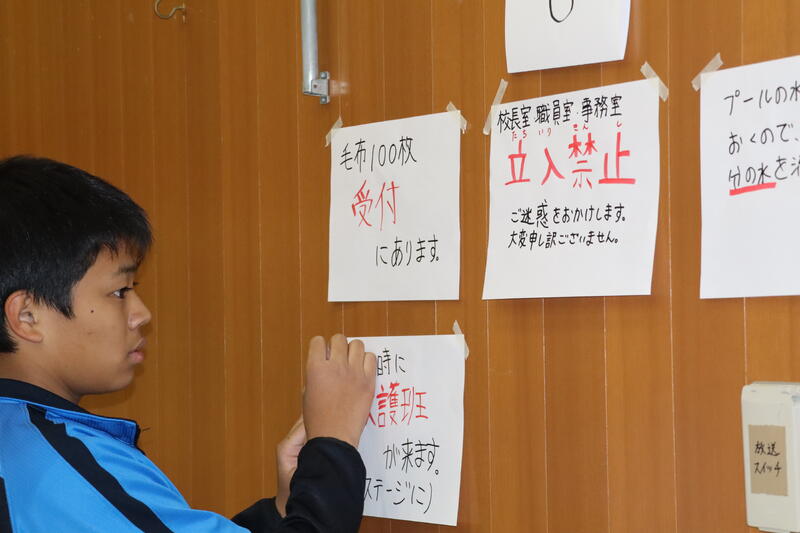 毛布100枚
受付
にあります。
校長室 職員室・事務室
たちいりきんし
立入禁止
ご迷惑をおかけします。
大変申し訳ございません。
プールの水
おくので、
分の水を流
時に
護班
が来ます。
ステージに)
放送
スイッチ